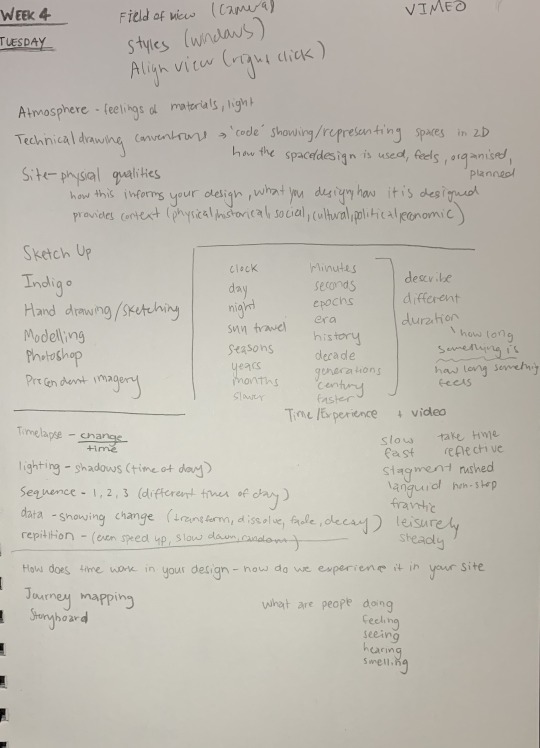 WEEK 4
TUESDAY
Field of view (Camera)
VIMEO
Styles (windows)
Align view (right click)
Atmosphere - feelings of materials, light
Technical drawing conventions → 'code' showing/representing spaces in 2D
how the space/design is used, feels, organised,
planned
Site - physical qualities
how this informs your design, what you design, how it is designed
provides context (physical, historical, social, cultural, political, economic)
Sketch Up
Indigo
Hand drawing/sketching
Modelling
Photoshop
Precendent imagery
clock
day
night
sun travel
seasons
years
months
slower
Minutes
seconds
epochs
era
history
decade
generations
century
faster
describe
different
duration
how long
something is
how long something
feels
Time/Experience + video
Timelapse - change
time
lighting - shadows (time of day)
Sequence - 1, 2, 3 (different times of day)
data - showing change (transform, dissolve, fade, decay)
repitition - (even speed up, slow down, random)
slow take time
fast reflective
stagment rushed
languid non-stop
frantic
leisurely
steady
How does time work in your design - how do we experience it in your site
Journey mapping
Storyboard
what are peopl doing
feeling
seeing
hearing
smelling